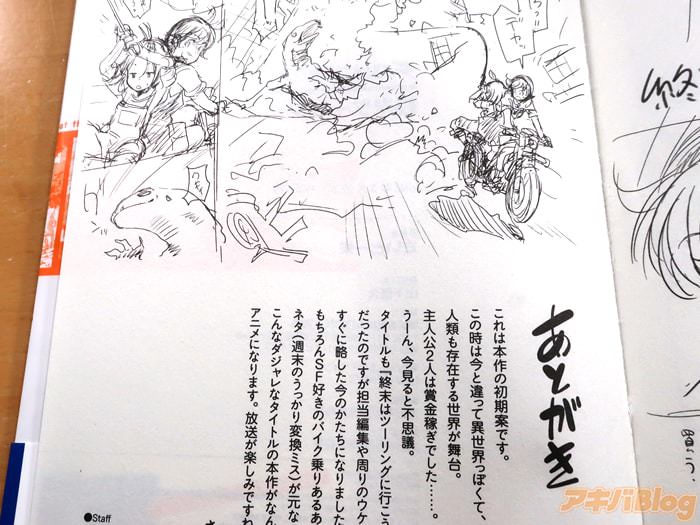 あとがき
これは本作の初期案です。
この時は今と違って異世界っぽくて、
人類も存在する世界が舞台。
主人公2人は賞金稼ぎでした……。
うーん、今見ると不思議。
タイトルも『終末はツーリングに行こう
だったのですが担当編集や周りのウケ
すぐに略した今のかたちになりました
もちろんSF好きのバイク乗りあるあ
ネタ(週末のうっかり変換ミス)が元な
こんなダジャレなタイトルの本作がなん
アニメになります。放送が楽しみですね
●Staff
終
アキバBlog